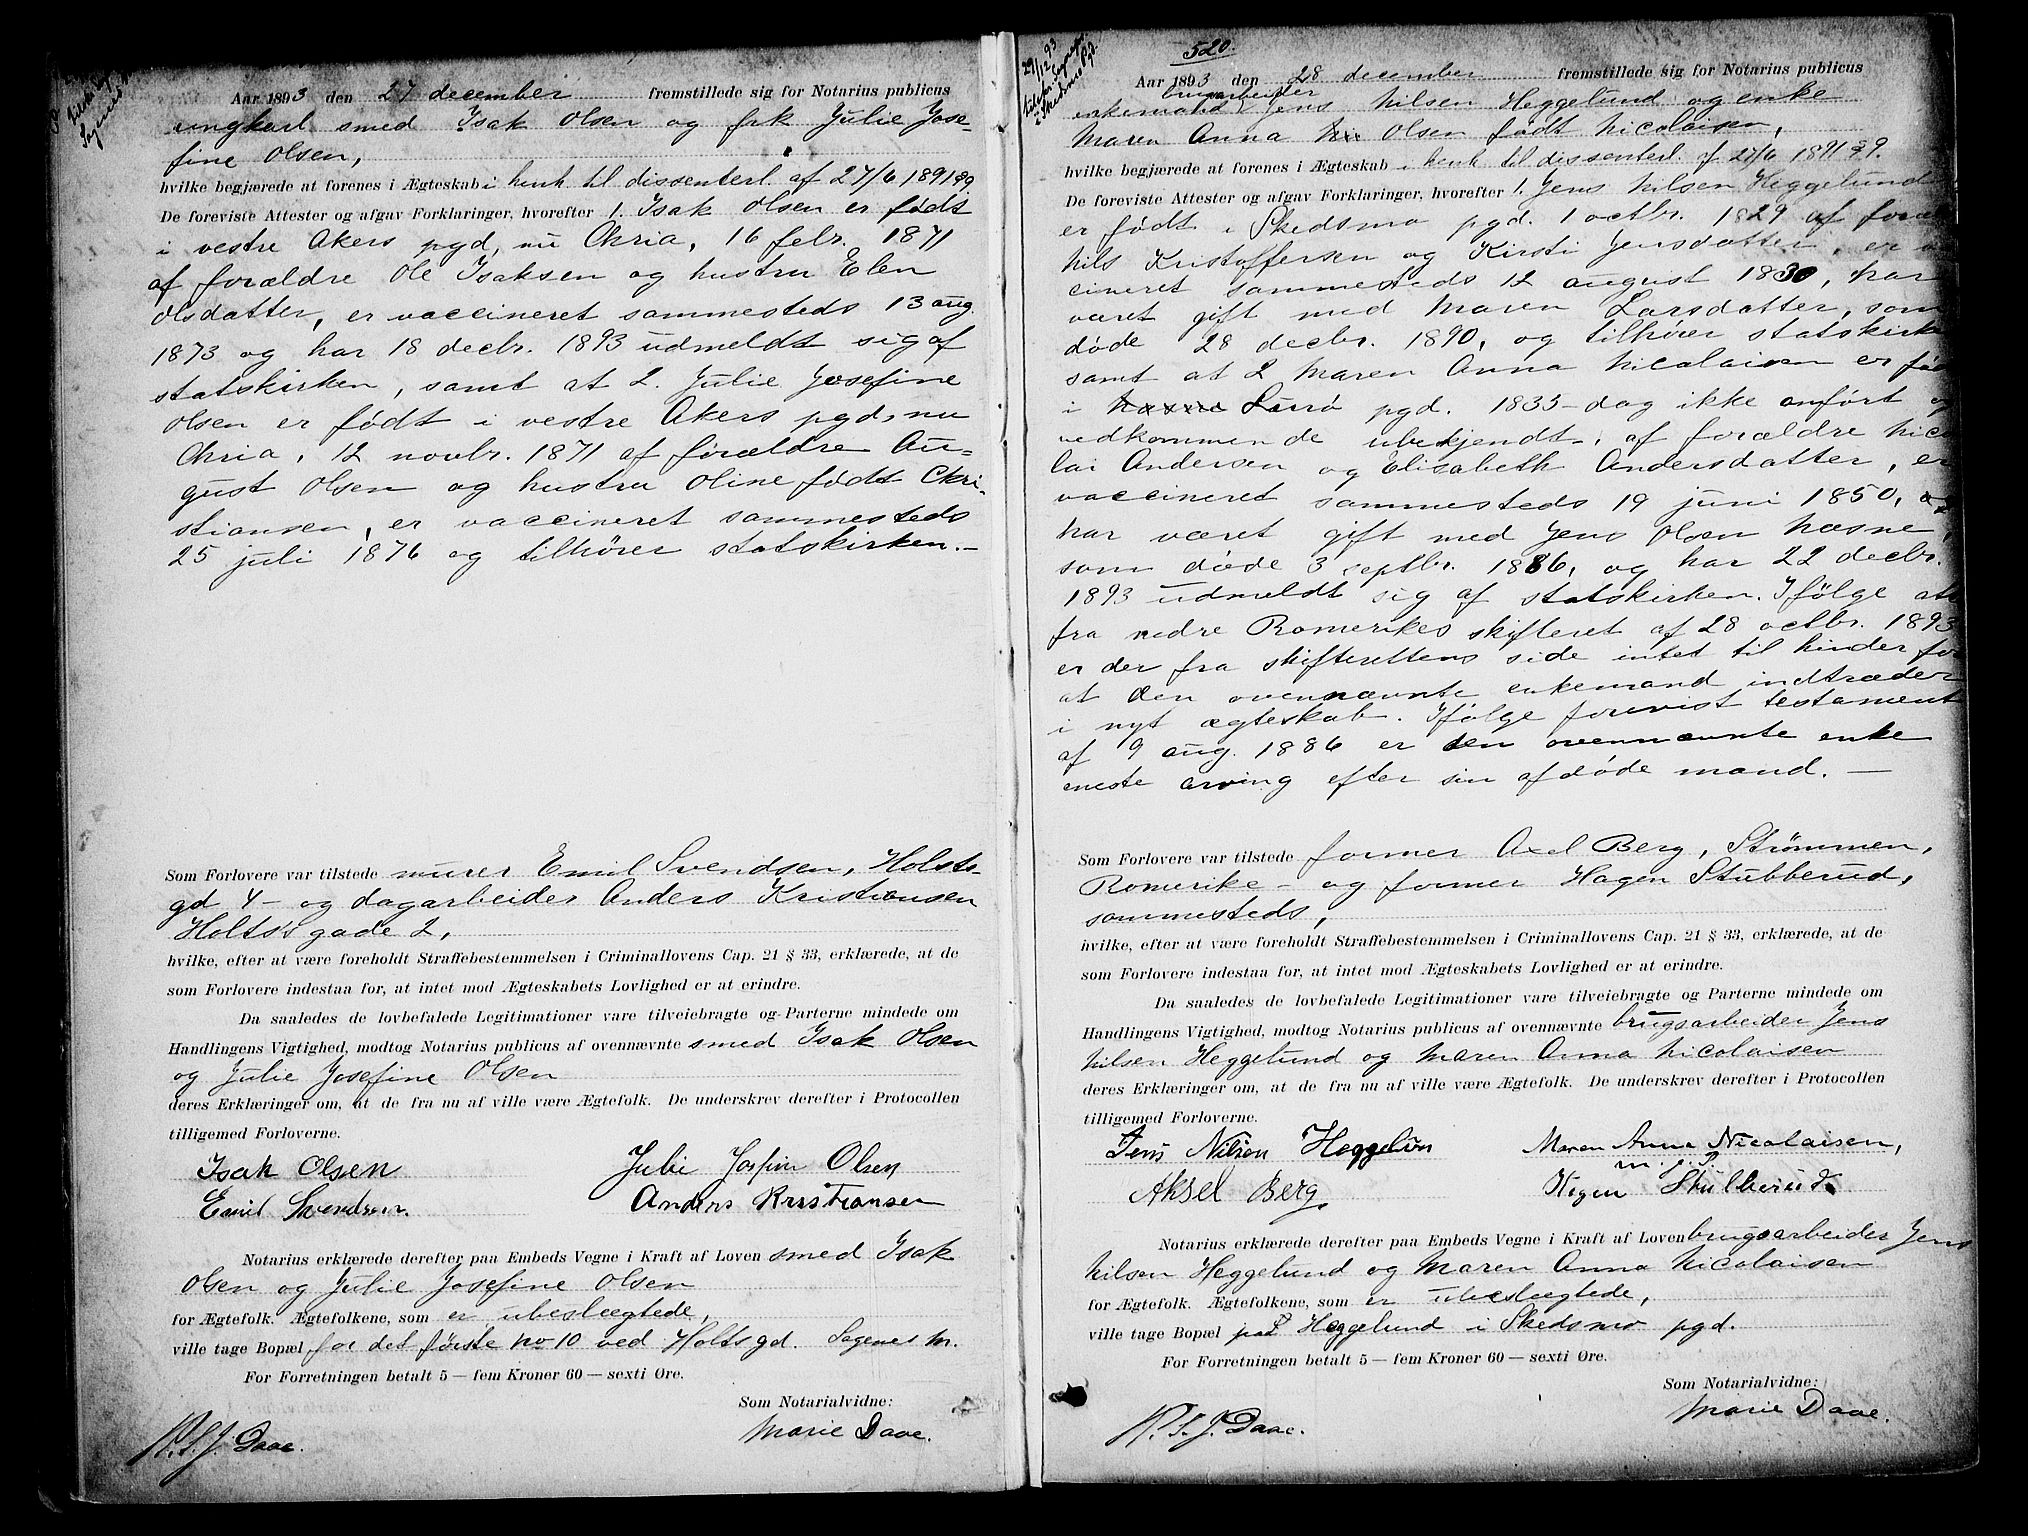 Aar 1893 den 27 december fremstillede sig for Notarius publicus
ungkarl smed Isak Olsen og frk Julie Jose-
fine Olsen,
hvilke begjærede at forenes i Ægteskab i henh til dissenterl. af 27/6 1891 § 9.
De foreviste Attester og afgav Forklaringer, hvorefter 1. Isak Olsen er født
i vestre Akers pgd, nu Chria, 16 febr. 1871
af forældre Ole Isaksen og hustru Elen
Olsdatter, er vaccineret sammesteds 13 aug.
1873 og har 18 decbr. 1893 udmeldt sig af
statskirken, samt at 2. Julie Josefine
Olsen er født i vestre Akers pgd, nu
Chria, 12 novbr. 1871 af forældre Au-
gust Olsen og hustru Oline født Chri-
stiansen, er vaccineret sammesteds
25 juli 1876 og tilhører statskirken.-
Som Forlovere var tilstede murer Emil Svendsen, Holsts
gd 4 - og dagarbeider Anders Kristiansen
Holts's gade 2,
hvilke, efter at være foreholdt Straffebestemmelsen i Criminallovens Cap. 21 § 33, erklærede, at de
som Forlovere indestaa for, at intet mod Ægteskabets Lovlighed er at erindre.
Da saaledes de lovbefalede Legitimationer vare tilveiebragte og Parterne mindede om
Handlingens Vigtighed, modtog Notarius publicus af ovennævnte smed Isak Olsen
og Julie Josefine Olsen
deres Erklæringer om, at de fra nu af ville være Ægtefolk. De underskrev derefter i Protocollen
tilligemed Forloverne.
Isak Olsen Julie Josfine Olsen
Emil Svendsen. Anders Kristiansen
Notarius erklærede derefter paa Embeds Vegne i Kraft af Loven smed Isak
Olsen og Julie Josefine Olsen
for Ægtefolk. Ægtefolkene, som er ubeslægtede,
ville tage Bopæl for det første no 10 ved Holts gd. Sagenes m.
For Forretningen betalt 5 — fem Kroner 60 — sexti Øre.
Som Notarialvidne:
Marie Daae.
Daae.
29/12 93
520.
Aar 1893 den 28 december fremstillede sig for Notarius publicus
brugsarbeider
enkemand Jens Nilsen Heggelund og enke
Maren Anna Olsen født Nicolaisen,
hvilke begjærede at forenes i Ægteskab i henh til dissenterl. af 27/6 1891 § 9.
De foreviste Attester og afgav Forklaringer, hvorefter 1. Jens Nilsen Heggelund
er født i Skedsmo pgd. 1 octbr. 1829 af foræl
Nils Kristoffersen og Kirsti Jensdatter, er va
cineret sammesteds 12 august 1830, har
været gift med Maren Larsdatter, som
døde 28 decbr. 1890, og tilhører statskirke
samt at 2 Maren Anna Nicolaisen er fød
i pgd. 1833 - dag ikke anført og
vedkommende ubekjendt - af forældre Nico
lai Andersen og Elisabeth Andersdatter, er
vaccineret sammesteds 19 juni 1850,
har været gift med Jens Olsen Næsne,
som døde 3 septbr. 1886, og har 22 decbr.
1893 udmeldt sig af statskirken. Ifølge att
fra nedre Romerikes skifteret af 28 octbr. 1893
er der fra skifterettens side intet til hinder for
at den ovennævnte enkemand indtræder
i nyt ægteskab. Ifølge forevist testament
af 9 aug. 1886 er den ovennævnte enke
eneste arving efter sin afdøde mand. —
Som Forlovere var tilstede former Axel Berg, Strømmen,
Romerike - og former Hagen Stubberud,
sammesteds,
hvilke, efter at være foreholdt Straffebestemmelsen i Criminallovens Cap. 21 § 33, erklærede, at de
som Forlovere indestaa for, at intet mod Ægteskabets Lovlighed er at erindre.
Da saaledes de lovbefalede Legitimationer vare tilveiebragte og Parterne mindede om
Handlingens Vigtighed, modtog Notarius publicus af ovennævnte brugsarbeider Jens
Nilsen Heggelund og Maren Anna Nicolaisen
deres Erklæringer om, at de fra nu af ville være Ægtefolk. De underskrev derefter i Protocollen
tilligemed Forloverne.
Jens Nilsen Heggelun Maren Anna Nicolaisen,
m. p. P.
Aksel Berg. Hagen Stulberud.
Notarius erklærede derefter paa Embeds Vegne i Kraft af Loven brugsarbeider Jens
Nilsen Heggelund og Maren Anna Nicolaisen
for Ægtefolk. Ægtefolkene, som er ubeslægtede,
ville tage Bopæl paa Heggelund i Skedsmo pgd.
For Forretningen betalt 5 — fem Kroner 60 — sexti Øre.
Som Notarialvidne:
Marie Daae.
Daae.